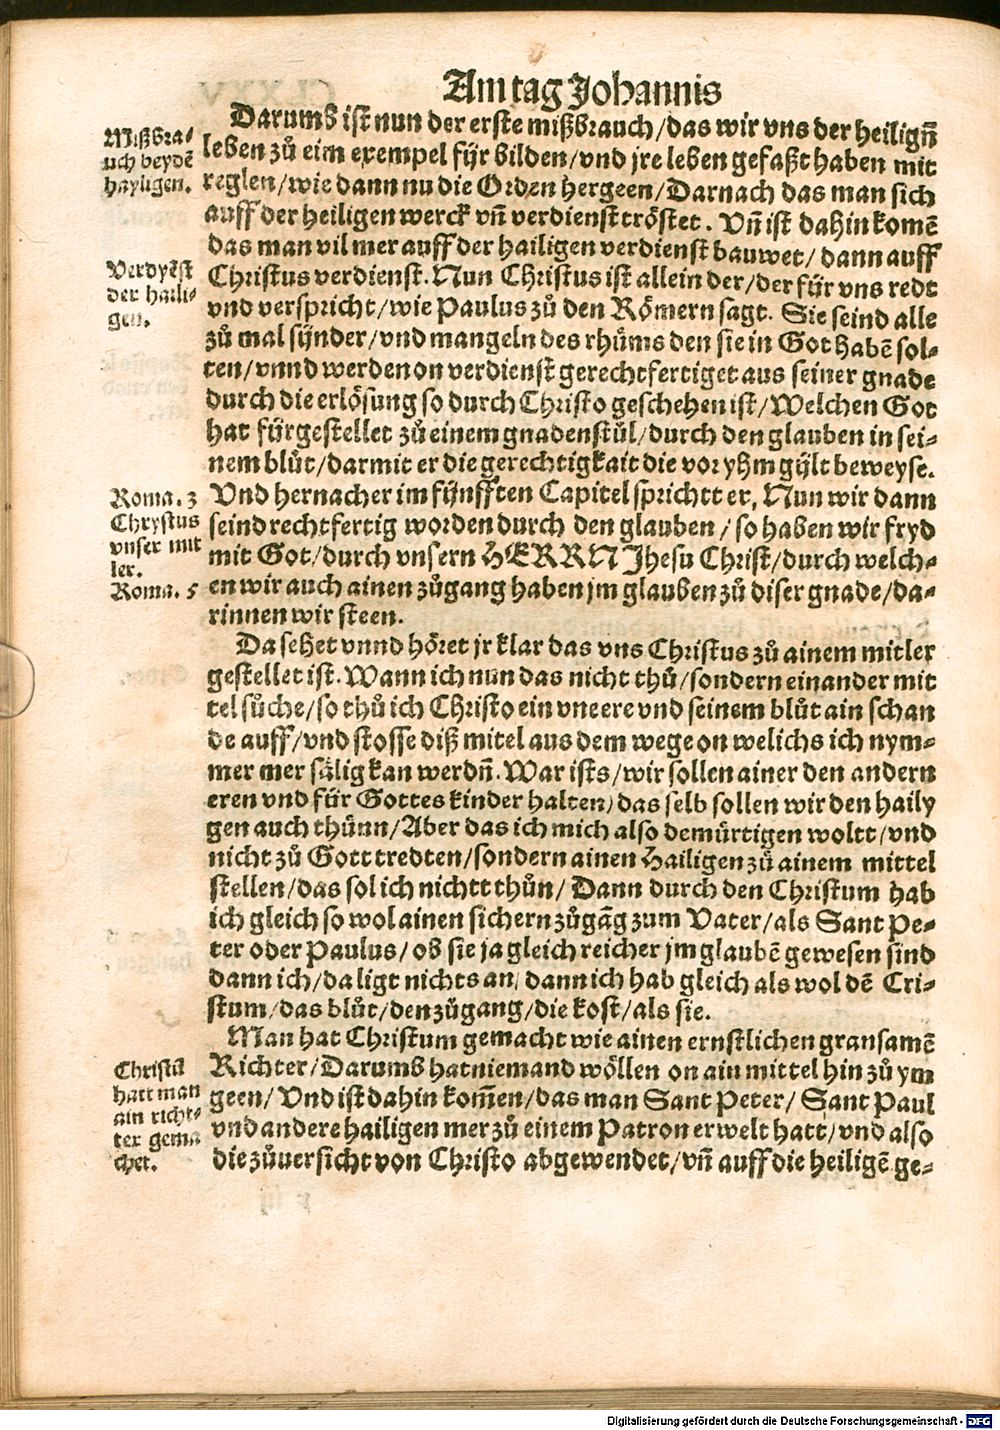 Am tag Johannis
Darumb ist nun der erste mißbrauch/das wir vns der heilign̄
Mißbra⸗
uch beydē
hayligen.
leben zů eim exempel fŷr bilden/vnd jre leben gefaßt haben mit
reglen/wie dann nu die Orden hergeen/Darnach das man sich
auff der heiligen werck vn̄ verdienst tröstet. Vn̄ ist dahin komē
das man vil mer auff der hailigen verdienst bauwet/dann auff
Verdyēst
der haili⸗
gen.
Christus verdienst. Nun Christus ist allein der/der für vns redt
vnd verspricht/wie Paulus zů den Römern sagt. Sie seind alle
zů mal sŷnder/vnd mangeln des rhůms den sie in Got habē sol⸗
ten/vnnd werden on verdienst gerechtfertiget aus seiner gnade
durch die erlösung so durch Christo geschehen ist/Welchen Got
hat fürgestellet zů einem gnadenstůl/durch den glauben in sei⸗
nem blůt/darmit er die gerechtigkait die vor yhm gŷlt beweyse.
Roma. 3
Chrystus
vnser mit
ler.
Roma. 5
Vnd hernacher im fŷnfften Capitel sprichtt er, Nun wir dann
seind rechtfertig worden durch den glauben/so haben wir fryd
mit Got/durch vnsern HERRN Jhesu Christ/durch welch⸗
en wir auch ainen zůgang haben jm glauben zů diser gnade/da⸗
rinnen wir steen.
Da sehet vnnd höret jr klar das vns Christus zů ainem mitler
gestellet ist. Wann ich nun das nicht thů/sondern einander mit
tel sůche/so thů ich Christo ein vneere vnd seinem blůt ain schan
de auff/vnd stosse diß mitel aus dem wege on welichs ich nym⸗
mer mer sälig kan werdn̄. War ists/wir sollen ainer den andern
eren vnd für Gottes kinder halten/das selb sollen wir den haily
gen auch thůnn/Aber das ich mich also demürtigen woltt/vnd
nicht zů Gott tredten/sondern ainen Hailigen zů ainem mittel
stellen/das sol ich nichtt thůn/Dann durch den Christum hab
ich gleich so wol ainen sichern zůgāg zum Vater/als Sant Pe⸗
ter oder Paulus/ob sie ja gleich reicher jm glaubē gewesen sind
dann ich/da ligt nichts an/dann ich hab gleich als wol dē Cri⸗
stum/das blůt/den zůgang/die kost/als sie.
Man hat Christum gemacht wie ainen ernstlichen gransamē
Christū
hatt man
ain richt⸗
ter gema
chet.
Richter/Darumb hat niemand wöllen on ain mittel hin zů ym
geen/Vnd ist dahin kom̄en/das man Sant Peter/Sant Paul
vnd andere hailigen mer zů einem Patron erwelt hatt/vnd also
die zůuersicht von Christo abgewendet/vn̄ auff die heiligē ge⸗
Digitalisierung gefördert durch die Deutsche Forschungsgemeinschaft - DFG